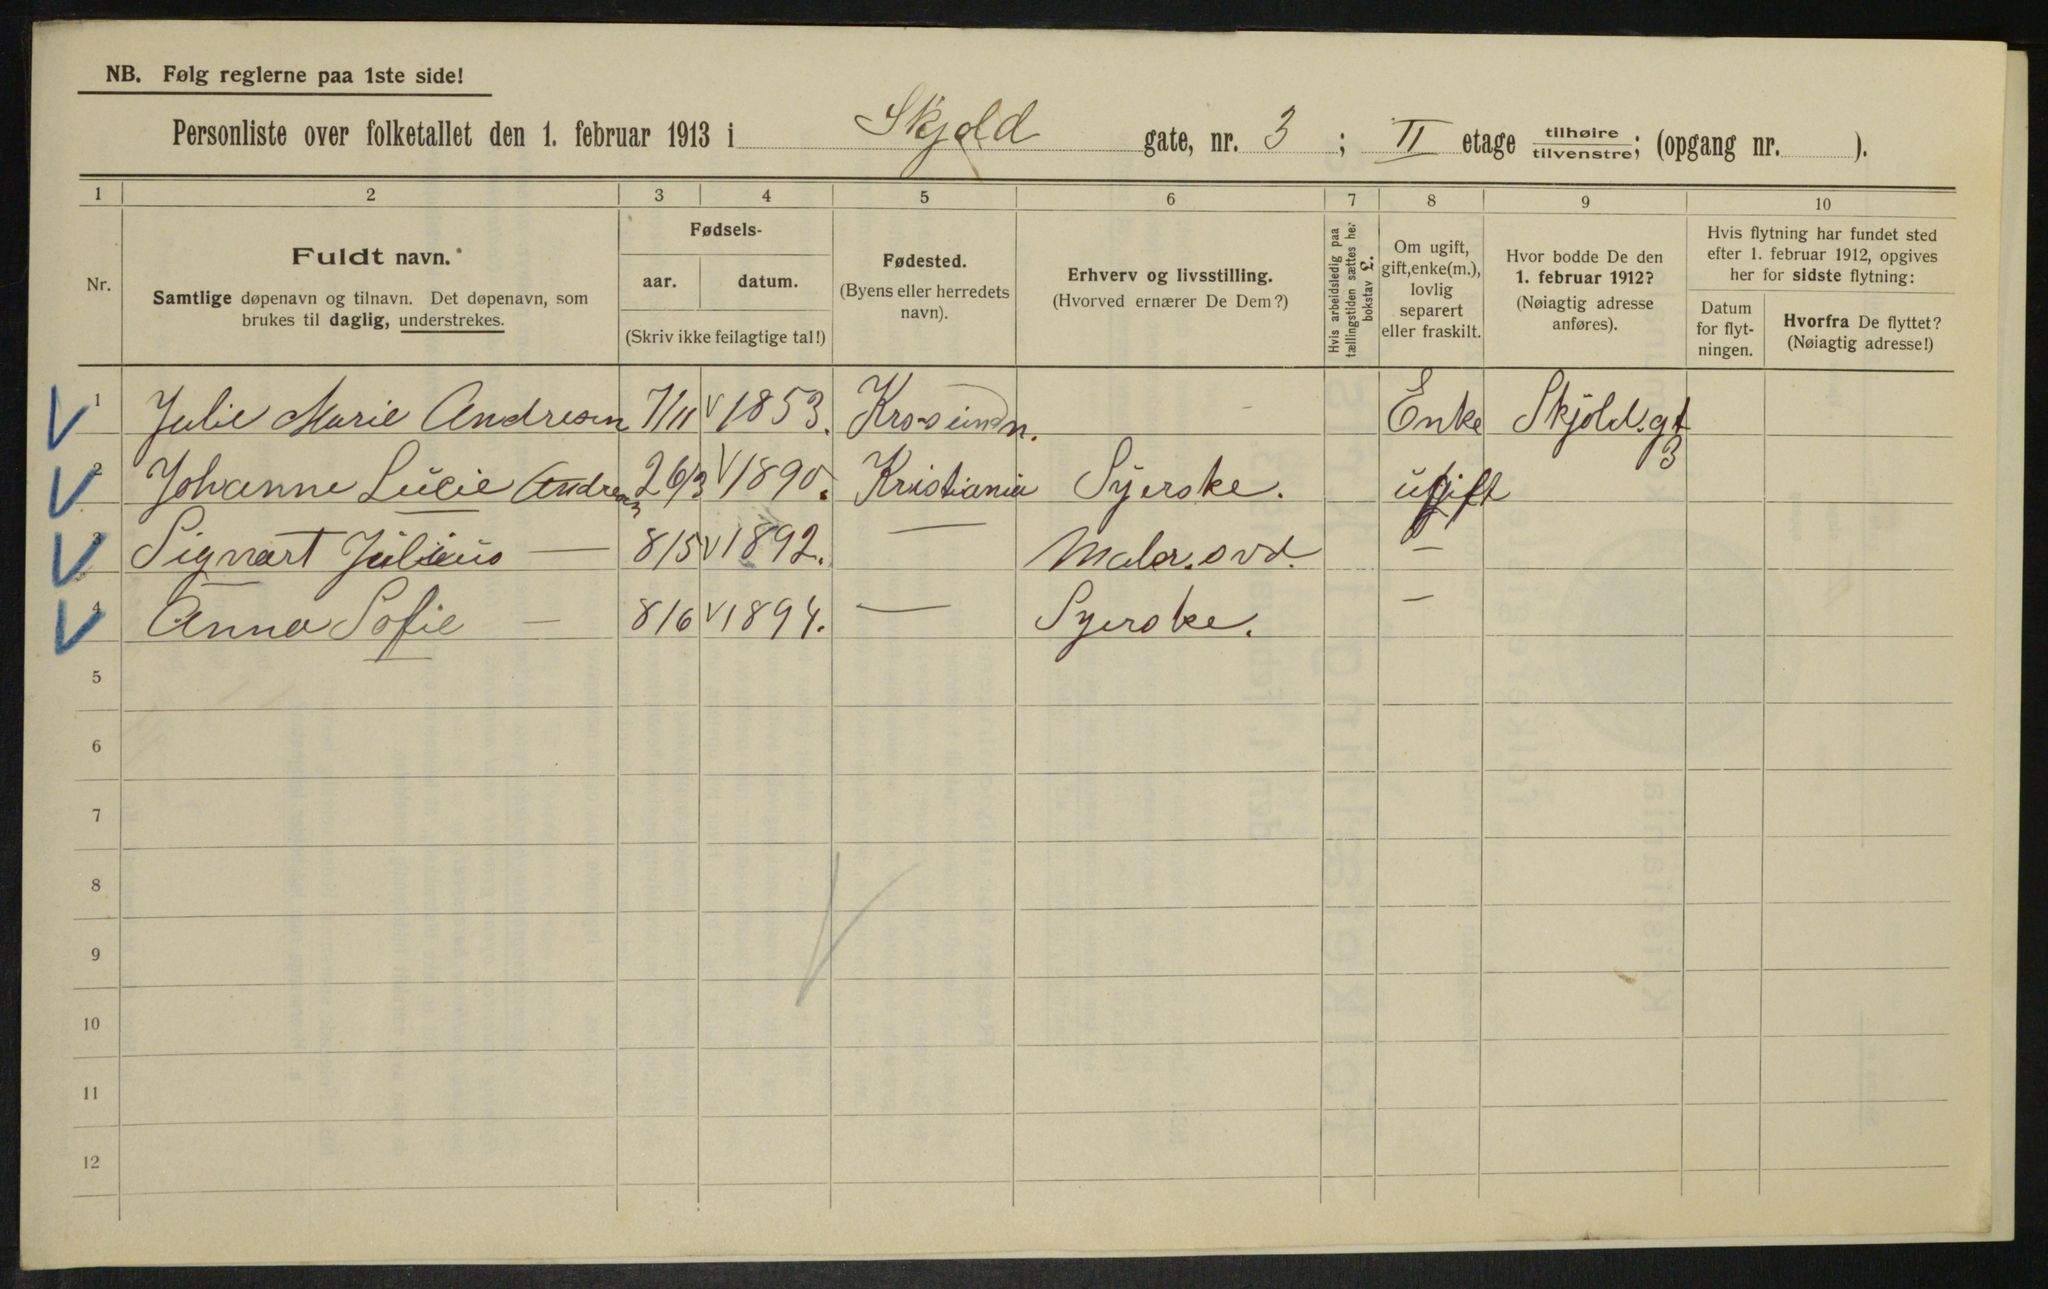 NB. Følg reglerne paa 1ste side!
Personliste over folketallet den 1. februar 1913 i Skjold gate, nr. 3 ; II etage tilhøire tilvenstre; (opgang nr. ).
1 2 3 4 5 6 7 8 9 10
Nr.
Fuldt navn.*
Samtlige døpenavn og tilnavn. Det døpenavn, som
brukes til daglig, understrekes.
Fødsels-
aar. datum.
(Skriv ikke feilagtige tal!)
Fødested.
(Byens eller herredets
navn).
Erhverv og livsstilling.
(Hvorved ernærer De Dem?)
Hvis arbeidsledig paa
tællingstiden sættes her
bokstav £.
Om ugift,
gift, enke(m.),
lovlig
separert
eller fraskilt.
Hvor bodde De den
1. februar 1912?
(Nøiagtig adresse
anføres).
Hvis flytning har fundet sted
efter 1. februar 1912, opgives
her for sidste flytning:
Datum
for flyt-
ningen.
Hvorfra De flyttet?
(Nøiagtig adresse!)
1 Julie Marie Andresen 7/11 V 1853. Enke Skjold.gt 3
2 Johanne Lucie Andresen 26/3 V 1890. Kristiania Syerske. ugift
3 Signart Julius — 8/5 V 1892. — Maler.svd. —
4 Anna Sofie — 8/6 V 1894. — Syerske. —
5
6
7
8
9
10
11
12